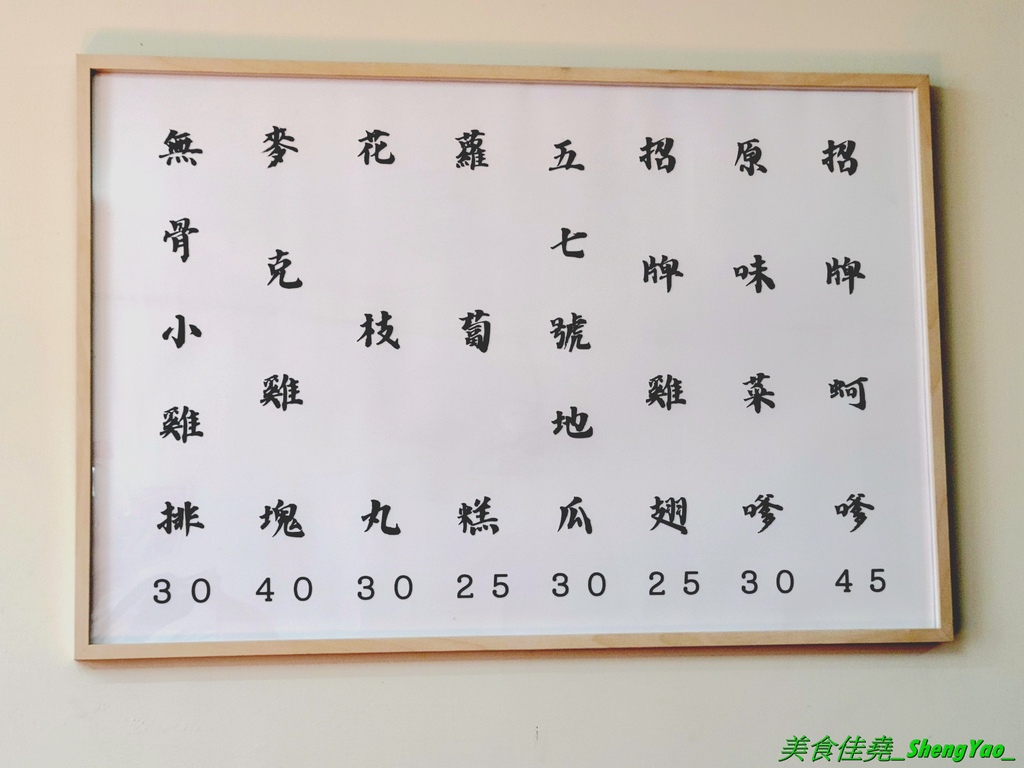 招牌蚵嗲
45
原味菜嗲
30
招牌雞翅
25
五七號地瓜
30
蘿蔔糕
25
花枝丸
30
麥克雞塊
40
無骨小雞排
30
美食佳堯_ShengYao_